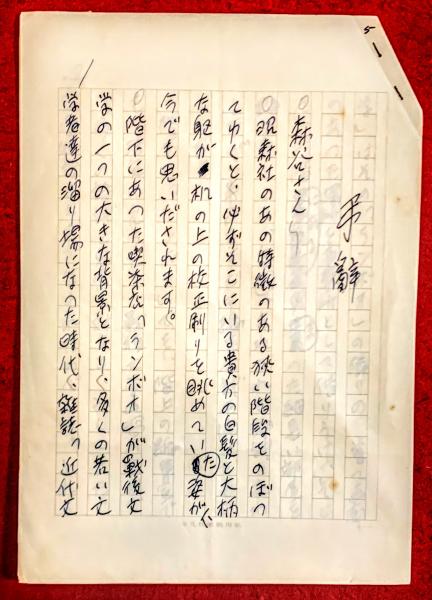 5
弔辭
○森谷さん
○昭森社のあの特徴のある狭い階段をのぼつ
てゆくと、必ずそこにいる貴方の白髪と大柄
な躯が机の上の校正刷りを眺めていた姿が、
今でも思いだされます。
○階下にあつた喫茶店「ランボオ」が戦後文
学の一つの大きな背景となり、多くの若い文
学者達の溜り場になつた時代、雑誌「近代文